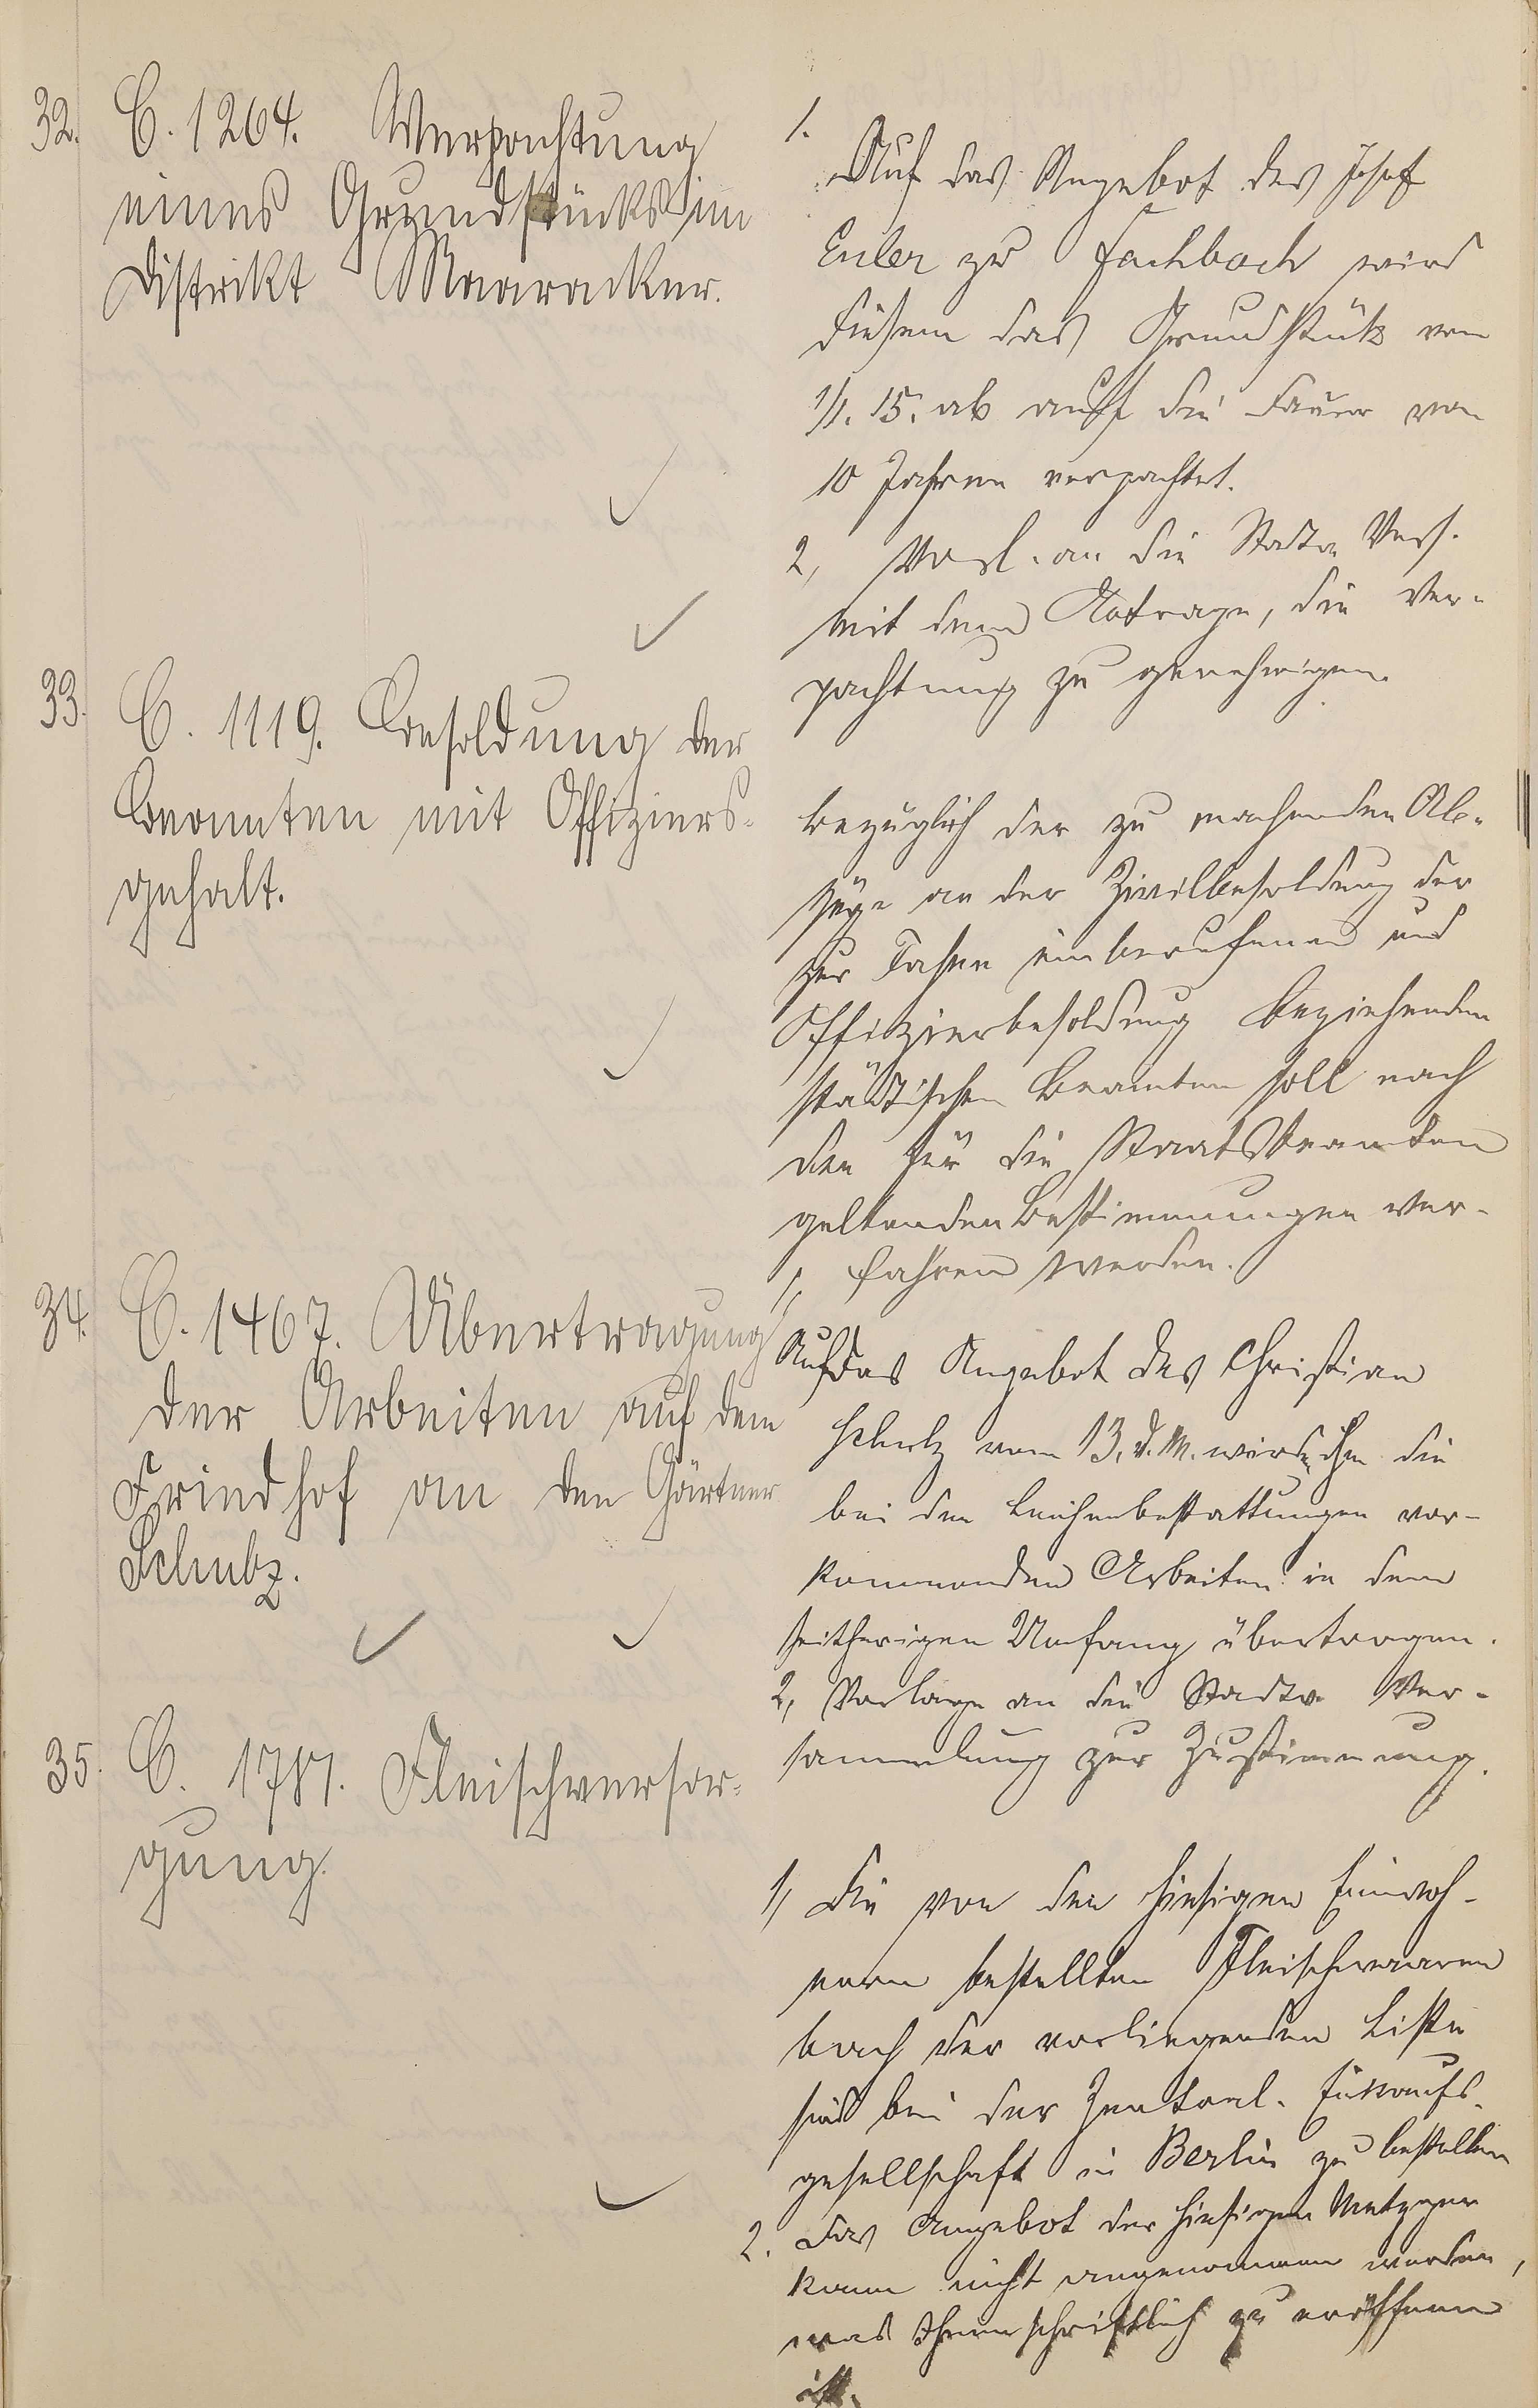 32. C. 1264. Verpachtung
eines Grundstücks im
Distrikt Maaracker.
1.
Auf das Angebot des Josef
Euler zu Fachbach wird
diesem das Grundstück vom
1/1. 15. ab auf die Dauer von
10 Jahren verpachtet.
2, Vorl. an die Stadtv. Vers.
mit dem Antrage, die Ver-
pachtung zu genehmigen.
33. C. 1119. Besoldung der
Beamten mit Offiziers-
gehalt.
Bezüglich der zu machenden Ab-
züge an der Zivilbesoldung der
zur Fahne einberufenen und
Offizierbesoldung beziehenden
städtischen Beamten soll nach
den für die Staatsbeamten
geltenden Bestimmungen ver-
fahren werden.
34. C. 1467. Übertragung
der Arbeiten auf dem
Friedhof an den Gärtner
Schulz.
1,
Auf das Angebot des Christian
Schulz vom 13. d. M. wird ihm die
bei den Leichenbestattungen vor-
kommenden Arbeiten in dem
seitherigen Umfang übertragen.
2, Vorlage an die Stadtv. Ver-
sammlung zur Zustimmung.
35. C. 1787. Fleischversor-
gung.
1, Die von den hiesigen Einwoh-
nern bestellten Fleischwaaren
nach der vorliegenden Liste
sind bei der Zentral-Einkaufs-
gesellschaft in Berlin zu bestellen
2. Das Angebot der hiesigen Metzger
kann nicht angenommen werden,
was Ihnen schriftlich zu eröffnen
ist.